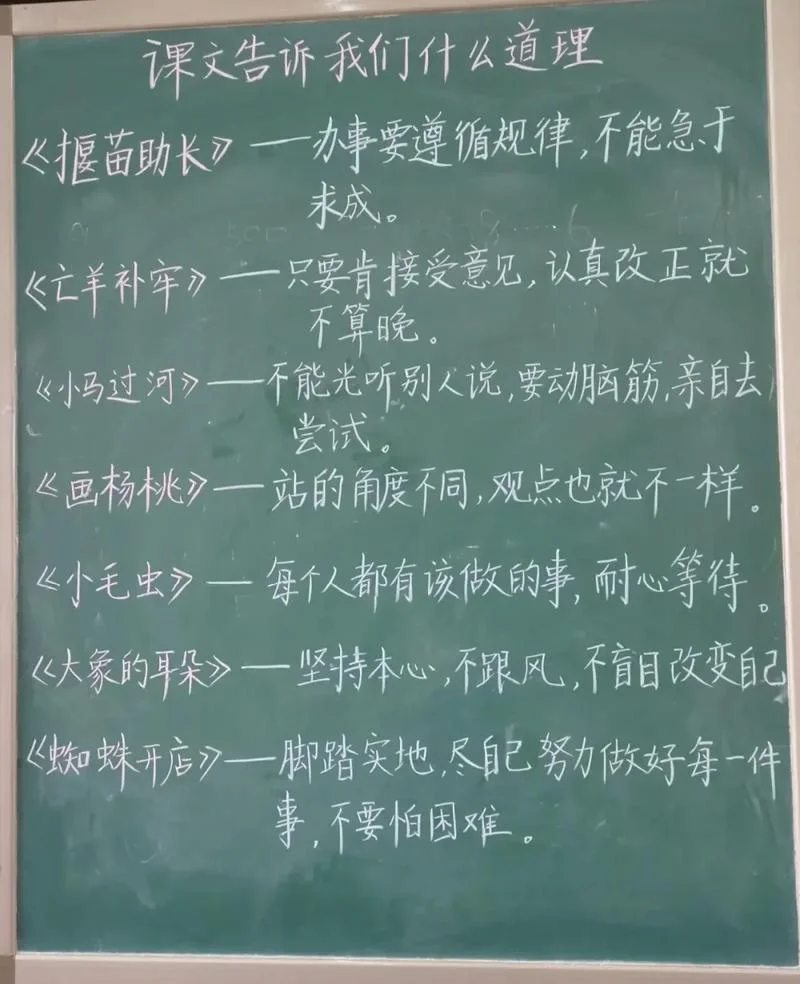 课文告诉我们什么道理
《揠苗助长》——办事要遵循规律,不能急于
求成。
《亡羊补牢》——只要肯接受意见,认真改正就
不算晚。
《小马过河》——不能光听别人说,要动脑筋,亲自去
尝试。
《画杨桃》——站的角度不同,观点也就不一样。
《小毛虫》——每个人都有该做的事,耐心等待。
《大象的耳朵》——坚持本心,不跟风,不盲目改变自己
《蜘蛛开店》——脚踏实地,尽自己努力做好每一件
事,不要怕困难。